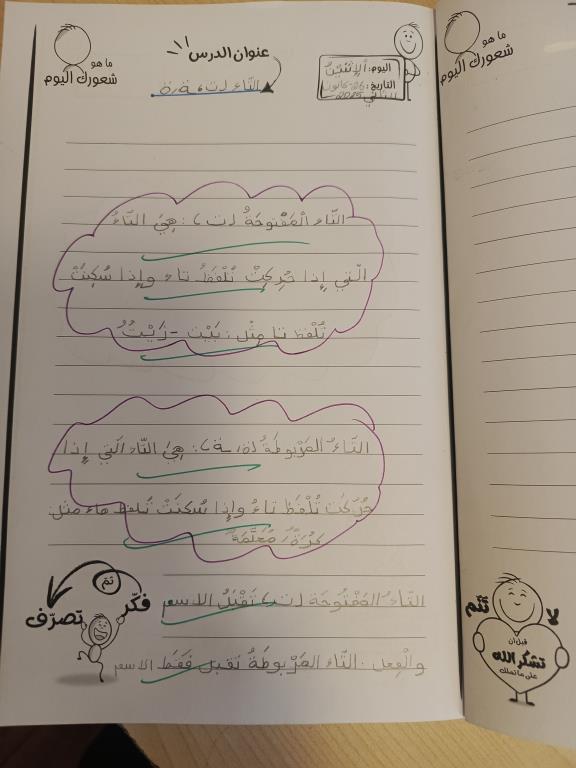 ما هو
شعورك اليوم
عنوان الدرس
التاء (ت، ـة، ة)
اليوم: الإثنين
التاريخ: 26 كانون
الثاني 2025
التَّاءُ الْمَفْتوحَةُ (ت): هِيَ التَّاءُ
الَّتي إِذا حُرِّكَتْ تُلْفَظُ تاء وإِذا سُكِّنَتْ
تُلْفَظ تا مِثْل: بَيْت - زَيْتٌ
التَّاءُ المَرْبوطَةُ (ة، ـة): هِيَ التّاء الَّتي إِذا
حُرِّكَت تُلْفَظ تاءً وإِذا سُكِّنَتْ تُلفظ هاء مثل
كُرَةٌ / مُعَلِّمَةٌ
التَّاءُ المَفْتُوحَة (ت) تَقْبَلُ الاسم
والْفِعل: التَّاء المَرْبوطَةُ تقبل فَقَط الاسم
فكّر
ثمّ
تصرّف
ما هو
شعورك اليوم
لا
تنم
قبل أن
تشكر الله
على ما تملك